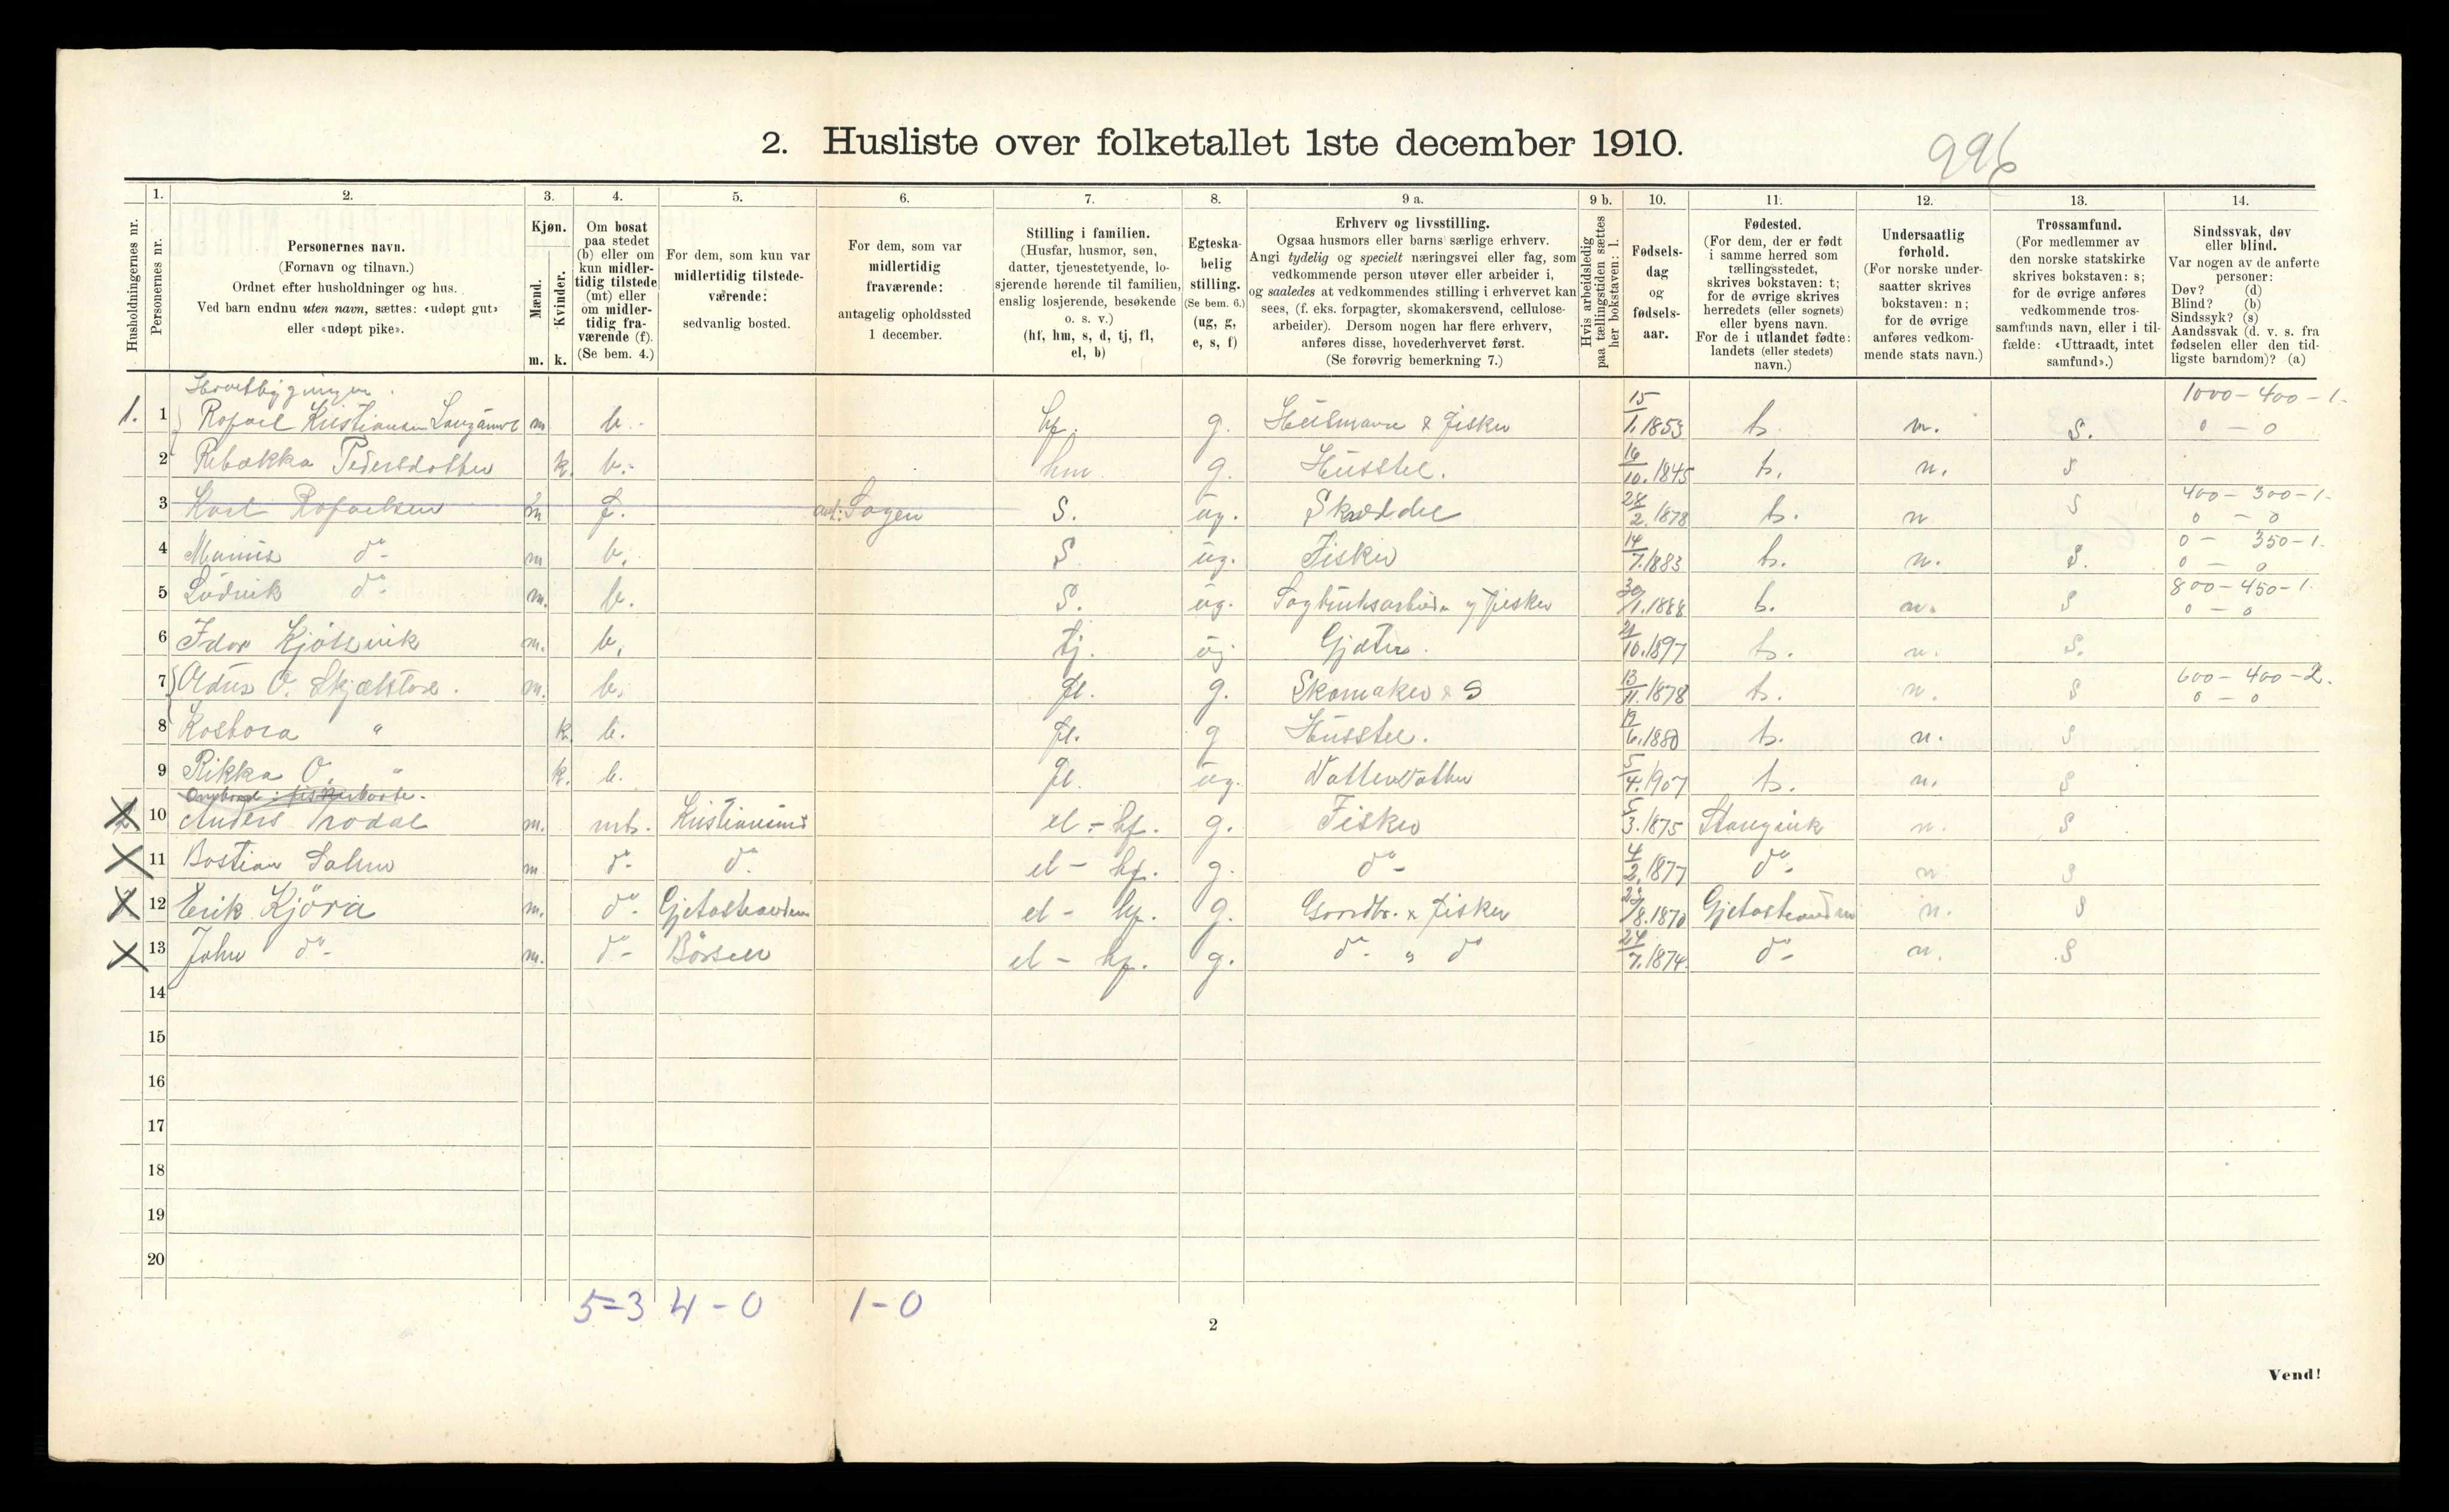 2. Husliste over folketallet 1ste december 1910.
996
Husholdningernes nr.
1.
Personernes nr.
2.
Personernes navn.
(Fornavn og tilnavn.)
Ordnet efter husholdninger og hus.
Ved barn endnu uten navn, sættes: «udøpt gut»
eller «udøpt pike».
3.
Kjøn.
Mænd.
Kvinder.
m. k.
4.
Om bosat
paa stedet
(b) eller om
kun midler-
tidig tilstede
(mt) eller
om midler-
tidig fra-
værende (f).
(Se bem. 4.)
5.
For dem, som kun var
midlertidig tilstede-
værende:
sedvanlig bosted.
6.
For dem, som var
midlertidig
fraværende:
antagelig opholdssted
1 december.
7.
Stilling i familien.
(Husfar, husmor, søn,
datter, tjenestetyende, lo-
sjerende hørende til familien,
enslig losjerende, besøkende
o. s. v.)
(hf, hm, s, d, tj, fl,
el, b)
8.
Egteska-
belig
stilling.
(Se bem. 6.)
(ug, g,
e, s, f)
9 a.
Erhverv og livsstilling.
Ogsaa husmors eller barns særlige erhverv.
Angi tydelig og specielt næringsvei eller fag, som
vedkommende person utøver eller arbeider i,
og saaledes at vedkommendes stilling i erhvervet kan
sees, (f. eks. forpagter, skomakersvend, cellulose-
arbeider). Dersom nogen har flere erhverv,
anføres disse, hovederhvervet først.
(Se forøvrig bemerkning 7.)
9 b.
Hvis arbeidsledig
paa tællingstiden sættes
her bokstaven: l.
10.
Fødsels-
dag
og
fødsels-
aar.
11.
Fødested.
(For dem, der er født
i samme herred som
tællingsstedet,
skrives bokstaven: t;
for de øvrige skrives
herredets (eller sognets)
eller byens navn.
For de i utlandet fødte:
landets (eller stedets)
navn.)
12.
Undersaatlig
forhold.
(For norske under-
saatter skrives
bokstaven: n;
for de øvrige
anføres vedkom-
mende stats navn.)
13.
Trossamfund.
(For medlemmer av
den norske statskirke
skrives bokstaven: s;
for de øvrige anføres
vedkommende tros-
samfunds navn, eller i til-
fælde: «Uttraadt, intet
samfund».)
14.
Sindssvak, døv
eller blind.
Var nogen av de anførte
personer:
Døv? (d)
Blind? (b)
Sindssyk? (s)
Aandssvak (d. v. s. fra
fødselen eller den tid-
ligste barndom)? (a)
1000 - 400 - 1.
1. 1 Rafael Kristiansen m b. hf. g. Husmann & fisker 15/1.1853 t. n. s. 0 - 0
2 Rebekka Pedersdotter k. b. hm g. Husstel. 16/10.1845 t. n. s
400 - 300 - 1.
3 Karl Rafaelsen m f. s. ug. 28/2.1878 t. n s 0 - 0
0 - 350 - 1.
4 do - m b. s. ug. Fisker 14/7.1883 t. n. s. 0 - 0
800 - 450 - 1.
5 Ludvik do - m. b. s. ug. Sagbruksarbeider og fisker 30/1.1888 t. n. s 0 - 0
6 m. b. tj. ug Gjæter. 10.1897 t. n. s.
600 - 400 - 2.
7 m. b. fl. g. Skomaker & S 13/11.1878 t. n. s 0 - 0
8 " k b. fl. g Husstel. 19/6.1880 t. n. s
9 Rikka O. " k. b. fl. ug. 5/4.1907 t. n. s
10 Anders m. mt. el - hf. g. Fisker 5/3.1875 Stangvik n. s
11 Bastian m. do - do el - hf. g. do - 4/2.1877 do - n s
12 Erik Kjöra m. do - Gjetastranden el - hf. g. Gaardbr. & fisker 8.1870 Gjetastranden n. s
13 John do - m. do - Börsen el - hf. g. do - " do 24/7.1874. do - n. s
14
15
16
17
18
19
20
5 - 3 4 - 0 1 - 0
2
Vend!